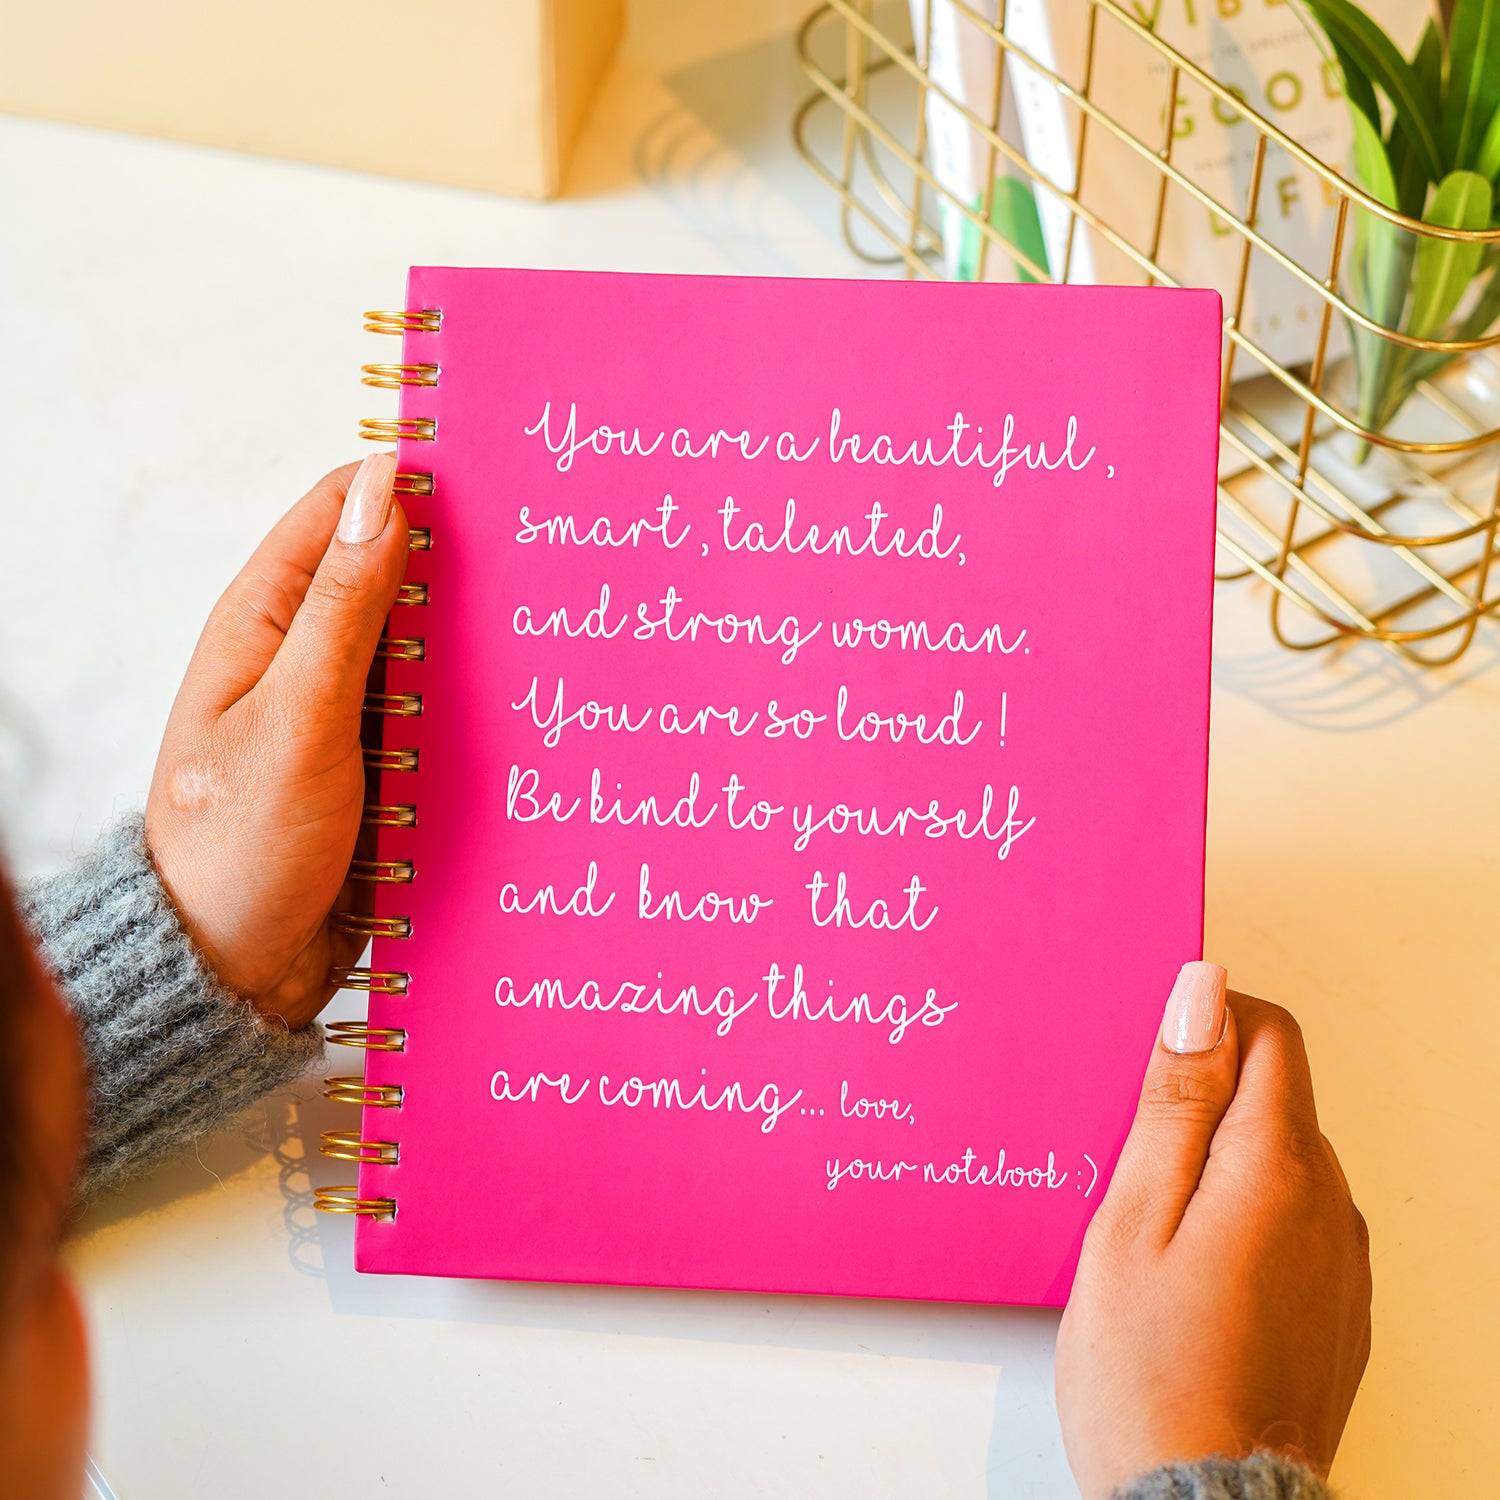 You are a beautiful,
smart, talented,
and strong woman.
You are so loved!
Be kind to yourself
and know that
amazing things
are coming... love,
your notebook :)
GOOD